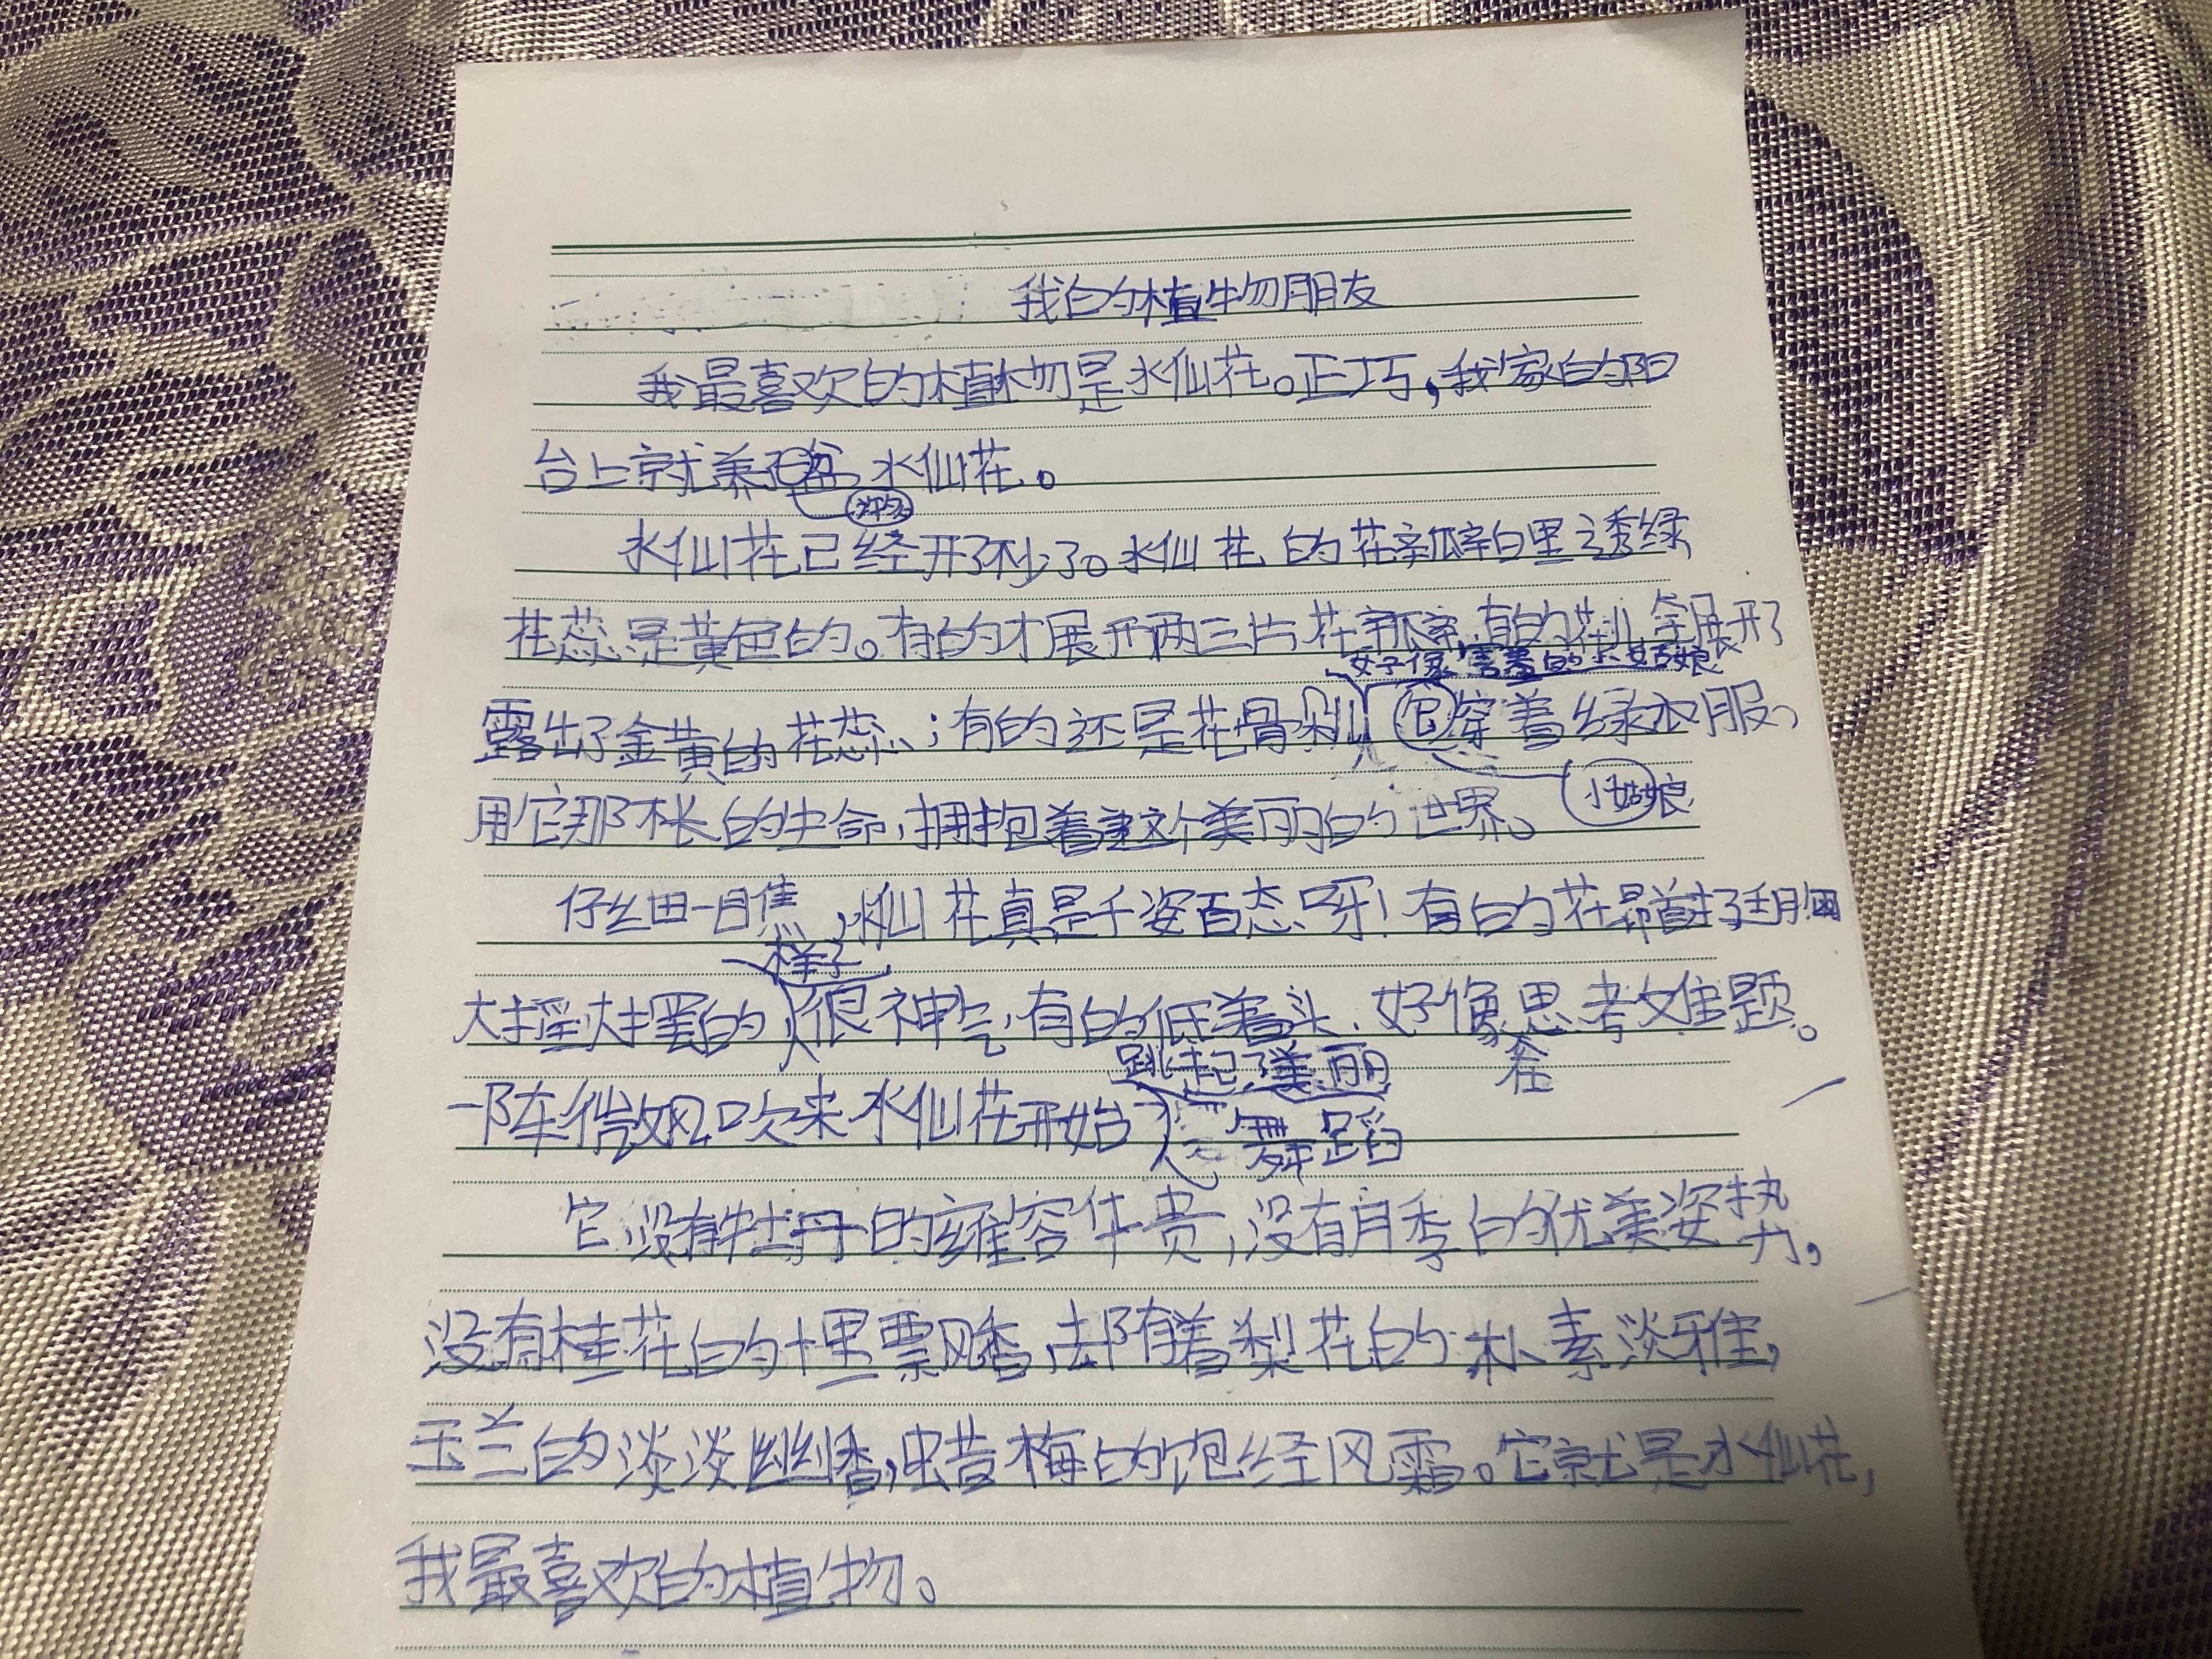 我的植物朋友
我最喜欢的植物是水仙花。正巧,我家的阳
台上就养了盆水仙花。
水仙花已经开了不少了。水仙花的花瓣白里透绿
花蕊是黄色的。有的才展开两三片花瓣,有的花儿全展开了
好像害羞的小姑娘
露出了金黄的花蕊;有的还是花骨朵儿它穿着绿衣服、
小姑娘
用它那不长的生命,拥抱着这个美丽的世界。
仔细一瞧,水仙花真是千姿百态呀!有的花昂首挺胸
样子
大摇大摆的很神气,有的低着头,好像思考难题。
在
跳起了美丽
一阵微风吹来水仙花开始
舞蹈
它没有牡丹的雍容华贵,没有月季的优美姿势,
没有桂花的十里飘香,却有着梨花的朴素淡雅,
玉兰的淡淡幽香,蜡梅的饱经风霜。它就是水仙花,
我最喜欢的植物。